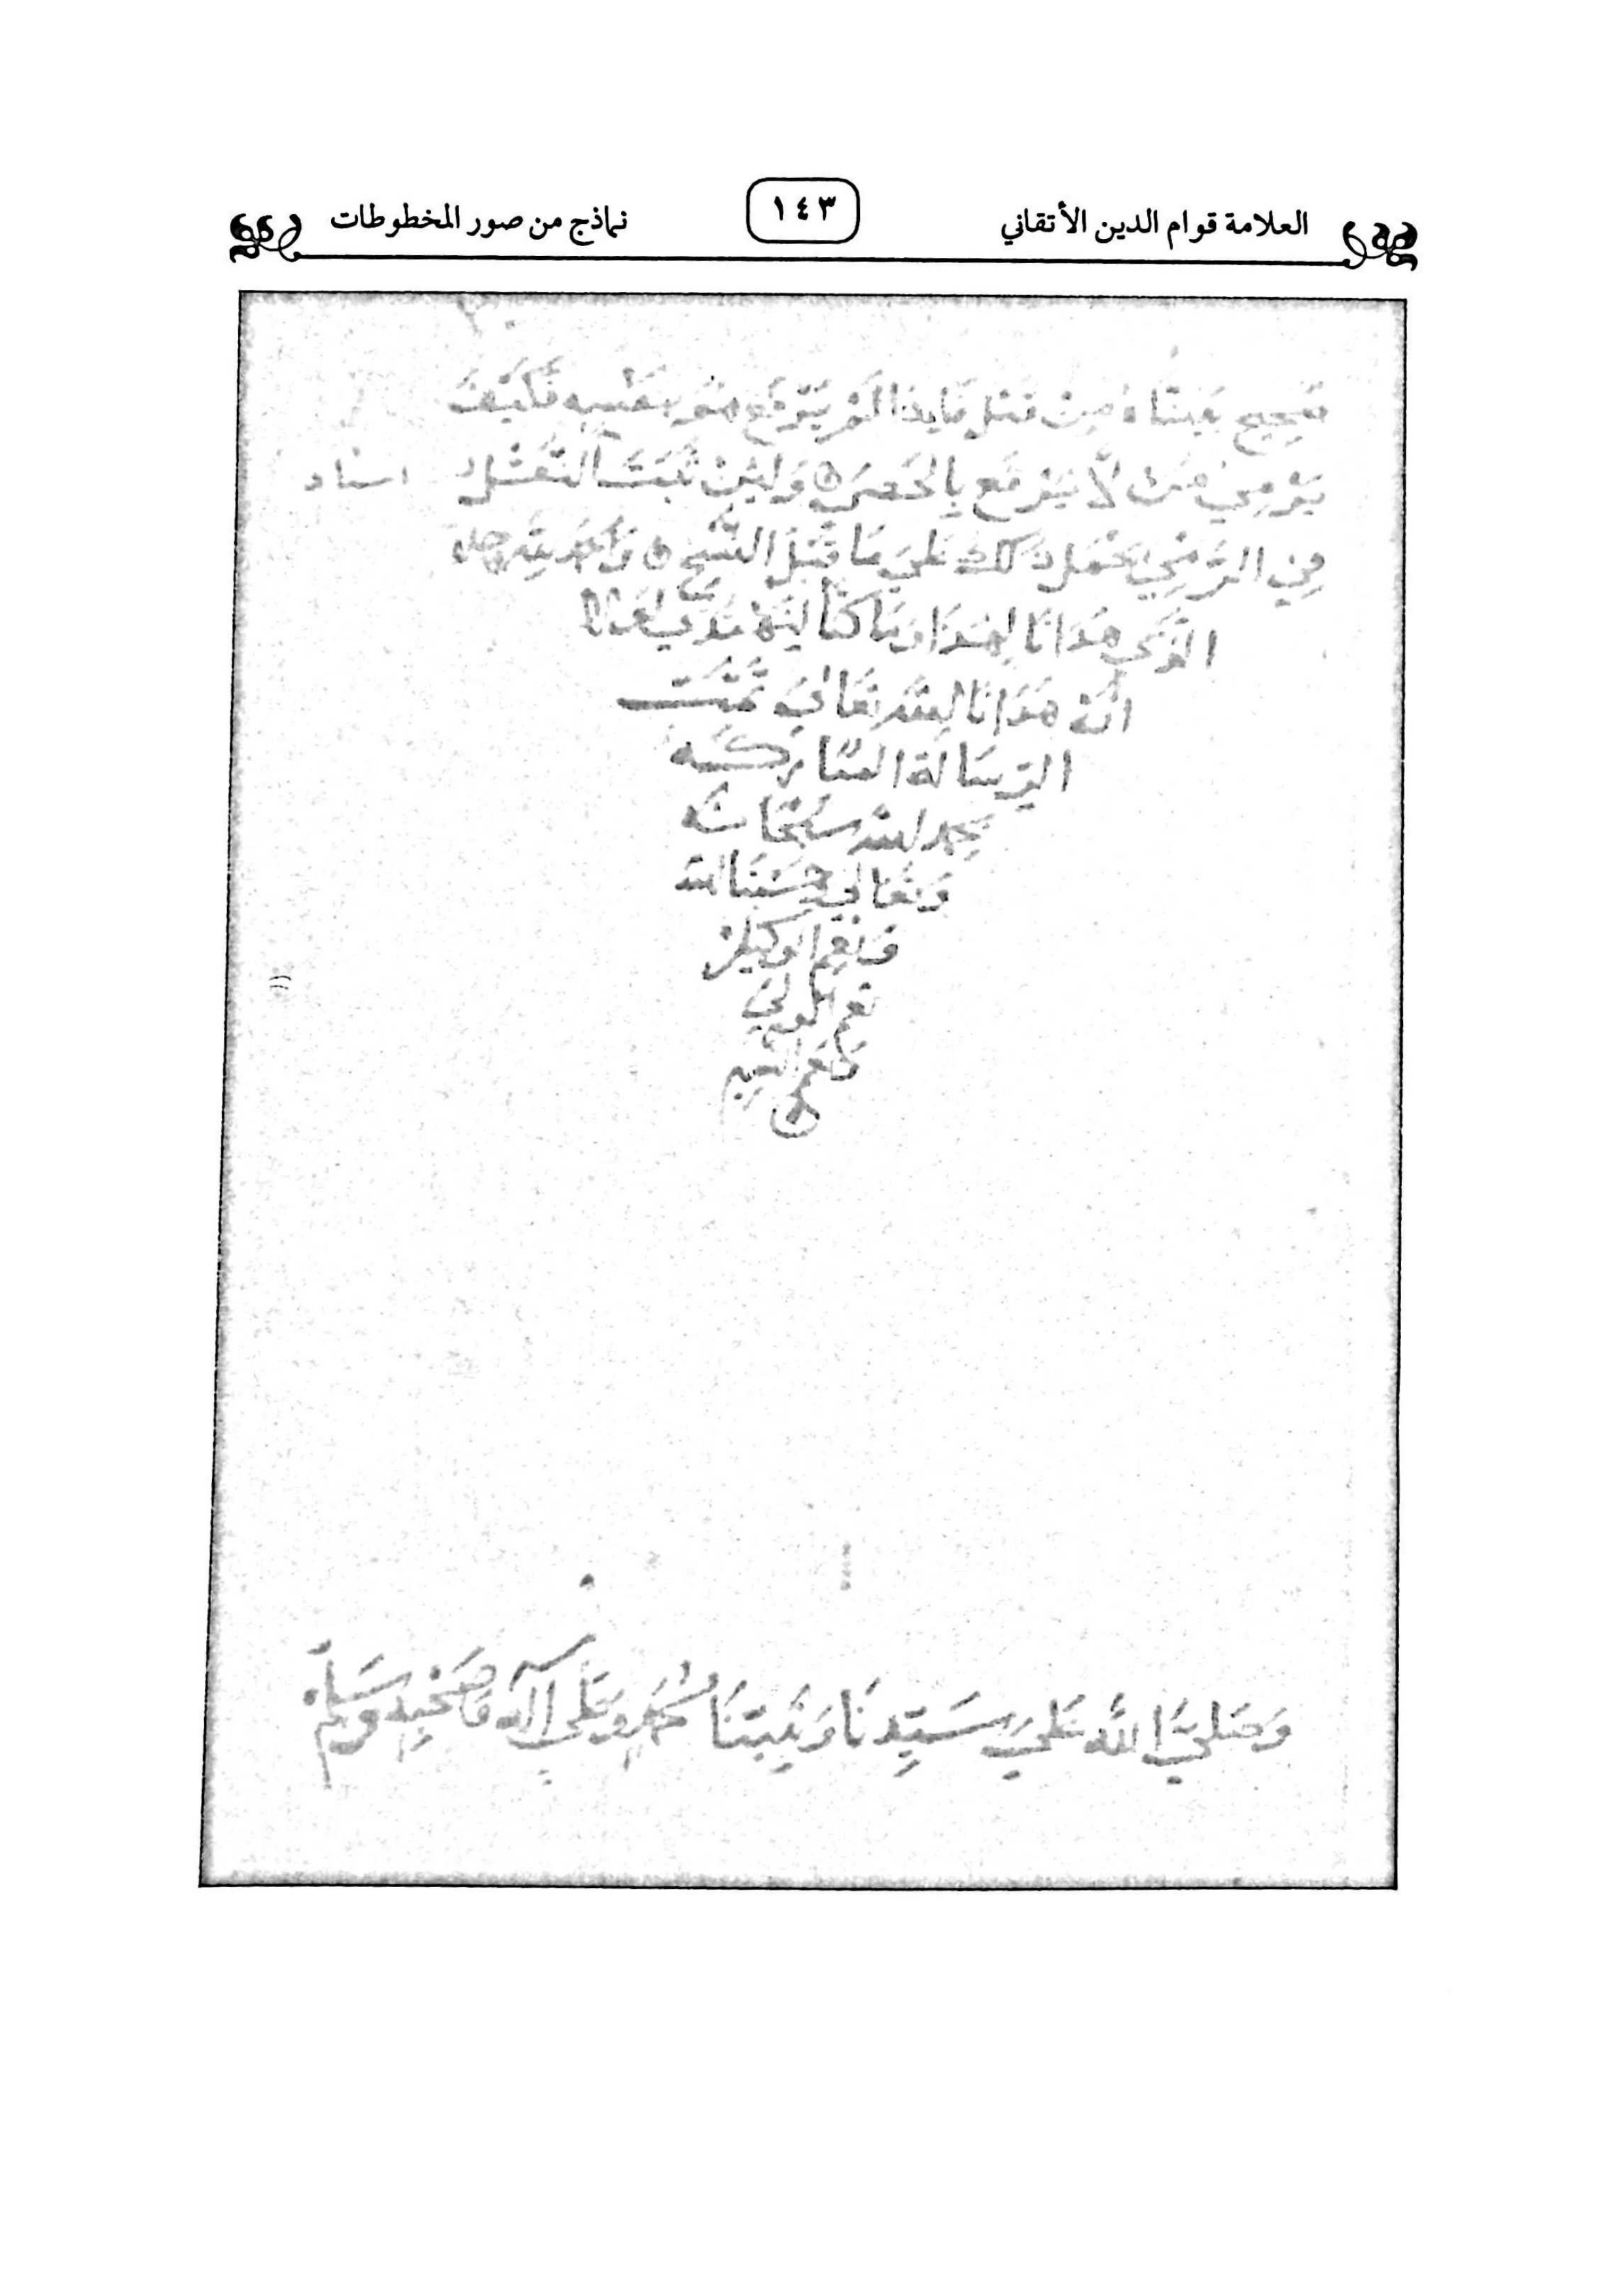 العلامة قوام الدين الأتقاني
١٤٣
نماذج من صور المخطوطات
صحيح بيناه من قبل فإذا لم يرفع هو بنفسه فكيف
يرمي من لا يرفع بالحصى ولئن ثبت النقل
اسناد
في الرمي يحمل ذلك على ما قبل النسخ والحمد لله
الذي هدانا لهذا وما كنا لنهتدي لولا
ان هدانا الله تعالى تمت
الرسالة المباركة
بحمد الله سبحانه
وتعالى حسبنا الله
ونعم الوكيل
نعم المولى
ونعم النصير
وَصَلَّى اللَّه عَلَى سَيِّدِنَا وَنَبِيِّنَا مُحَمَّدٍ وَعَلَى آلِهِ وَصَحْبِهِ وَسَلَّمْ